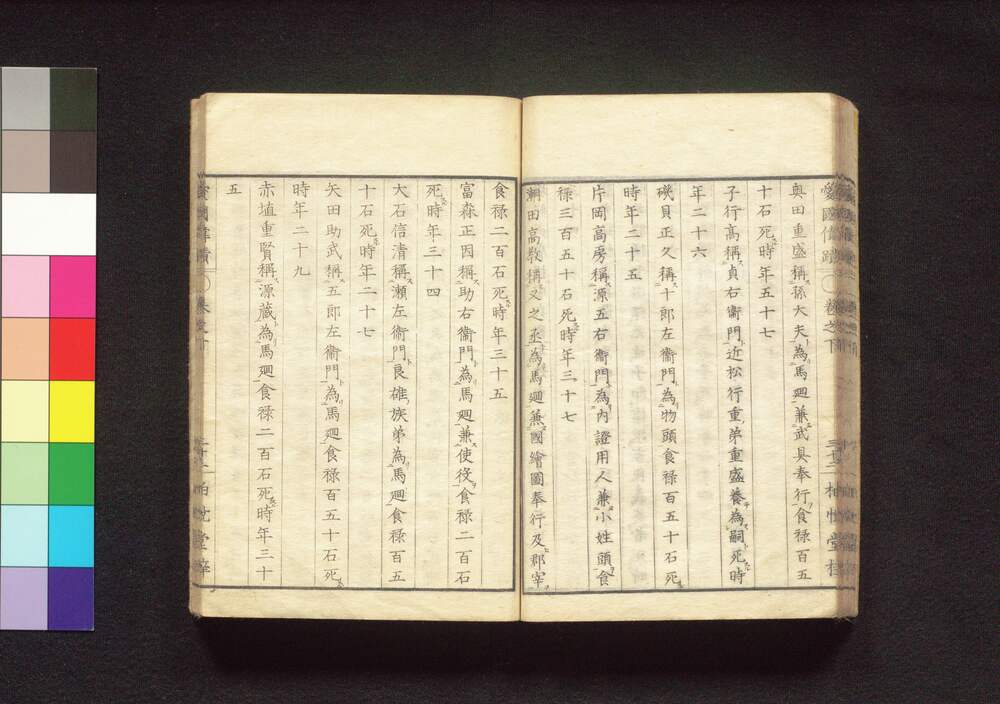 奥田重盛稱孫大夫為馬廻兼武具奉行食祿百五
十石死時年五十七
子行高稱貞右衞門近松行重弟重盛養為嗣死時
年二十六
磯貝正久稱十郎左衞門為物頭食祿百五十石死
時年二十五
片岡高房稱源五右衞門為內證用人兼小姓頭食
祿三百五十石死時年三十七
潮田高教稱又之丞為馬廻兼國繪圖奉行及郡宰
食祿二百石死時年三十五
富森正因稱助右衞門為馬廻兼使役食祿二百石
死時年三十四
大石信清稱瀬左衞門良雄族弟為馬廻食祿百五
十石死時年二十七
矢田助武稱五郎左衞門為馬廻食祿百五十石死
時年二十九
赤埴重賢稱源藏為馬廻食祿二百石死時年三十
五
卷之下